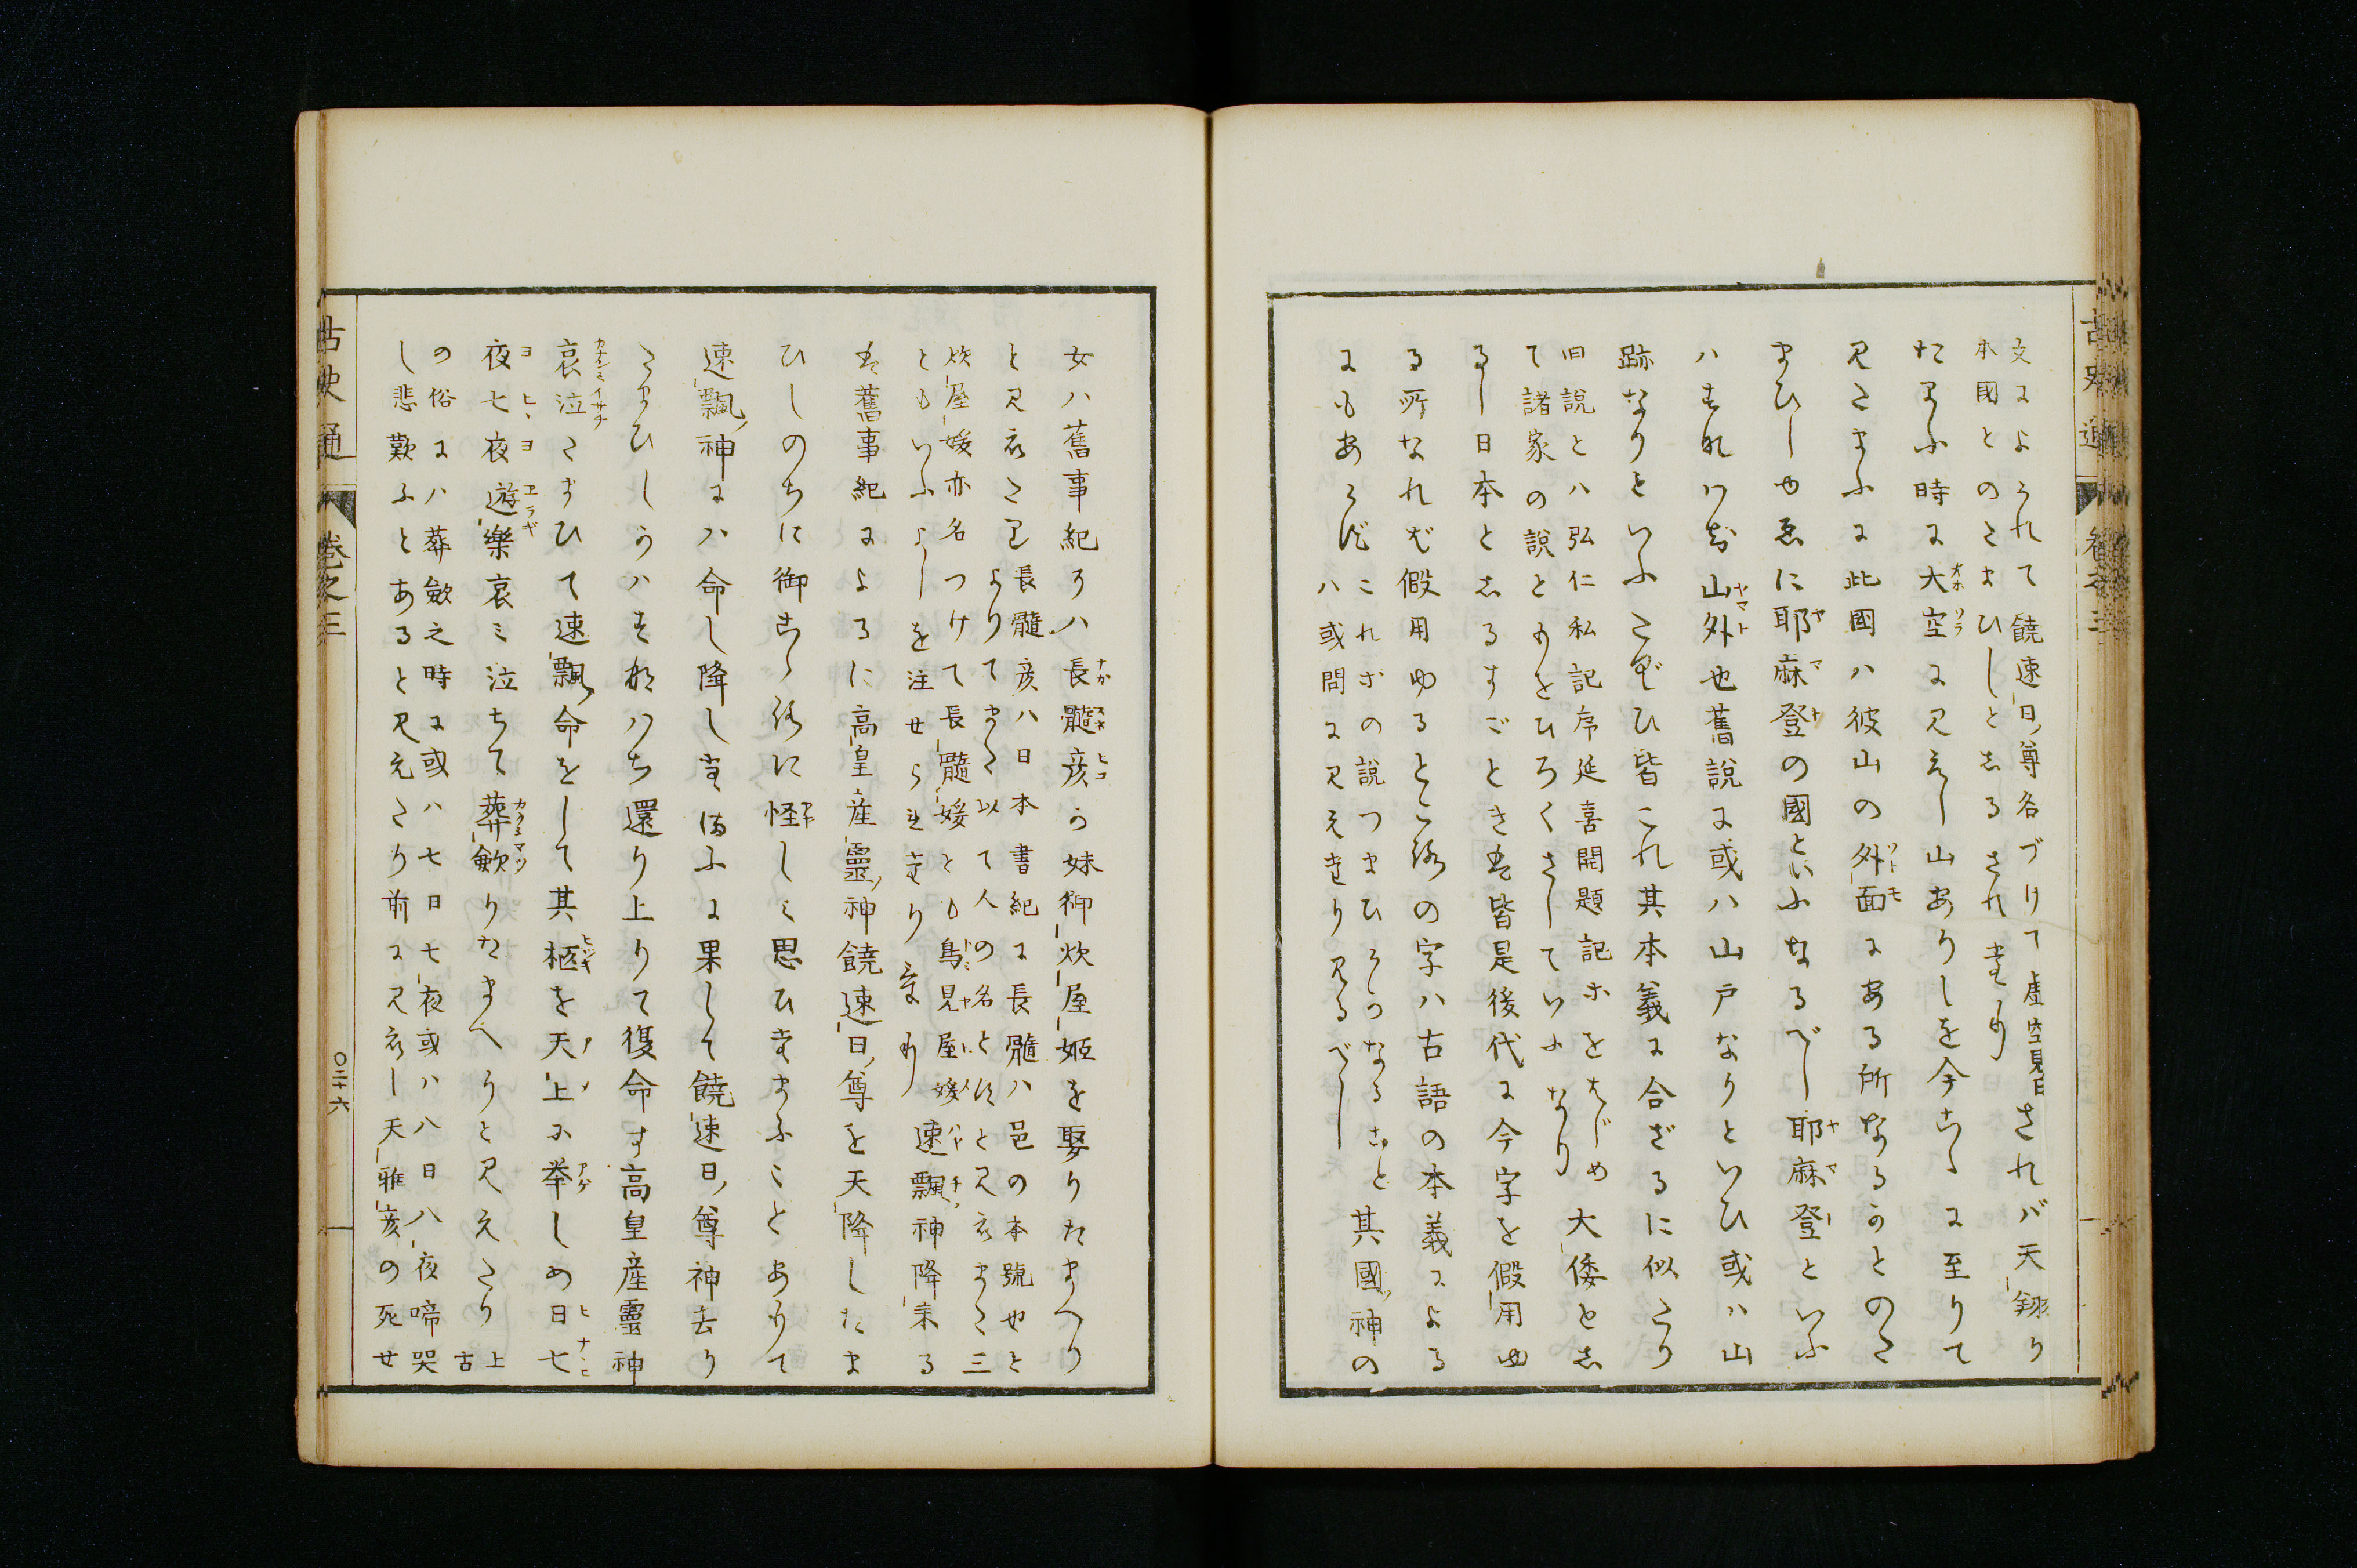 古史通 卷之三
文によられて饒速日尊名づけて虚空見日
本國とのたまひしとしるされたり
されバ天翔り
たまふ時に大空に見えし山ありしを今こゝに至りて
見たまふに此國ハ彼山の外面にある所なるかとのた
まひしゆゑに耶麻登の國といふなるべし耶麻登といふ
ハすなハち山外也舊説に或ハ山戸なりといひ或ハ山
跡なりといふたぐひ皆これ其本義に合ざるに似たり
旧説とハ弘仁私記序延喜開題記ホをはじめ
て諸家の説とものをひろくさしていふなり
大倭としるし日本としるすごとき共皆是後代に今字を假用ゆ
る所なれば假用ゆるところの字ハ古語の本義による
にもあらず
これホの説つまひらかなること
ハ或問に見えたり見るべし
其國神の
女ハ舊事紀にハ長髓彦か妹御炊屋姫を娶りたまへり
と見えたり
長髓彦ハ日本書紀に長髓ハ邑の本號也と
よりてまた以て人の名とすと見えまた三
炊屋媛亦名つけて長髓媛とも鳥見屋媛
ともいふよしを注せられたり
速飄神降来る
舊事紀によるに高皇産靈神饒速日尊を天降したま
ひしのちに御こゝろに怪しミ思ひたまふことありて
速飄神にハ命し降したまふに果して饒速日尊神去り
たまひしかハすなハち還り上りて復命す高皇産靈神
哀泣たまひて速飄命をして其柩を天上に挙しめ日七
夜七夜遊樂哀ミ泣ちて葬歛りたまへりと見えたり
上古
の俗にハ葬歛之時に或ハ七日七夜或ハ八日八夜啼哭
し悲歎ふとあると見えたり前に見えし天雅彦の死せ
古史通 卷之三 〇二十六